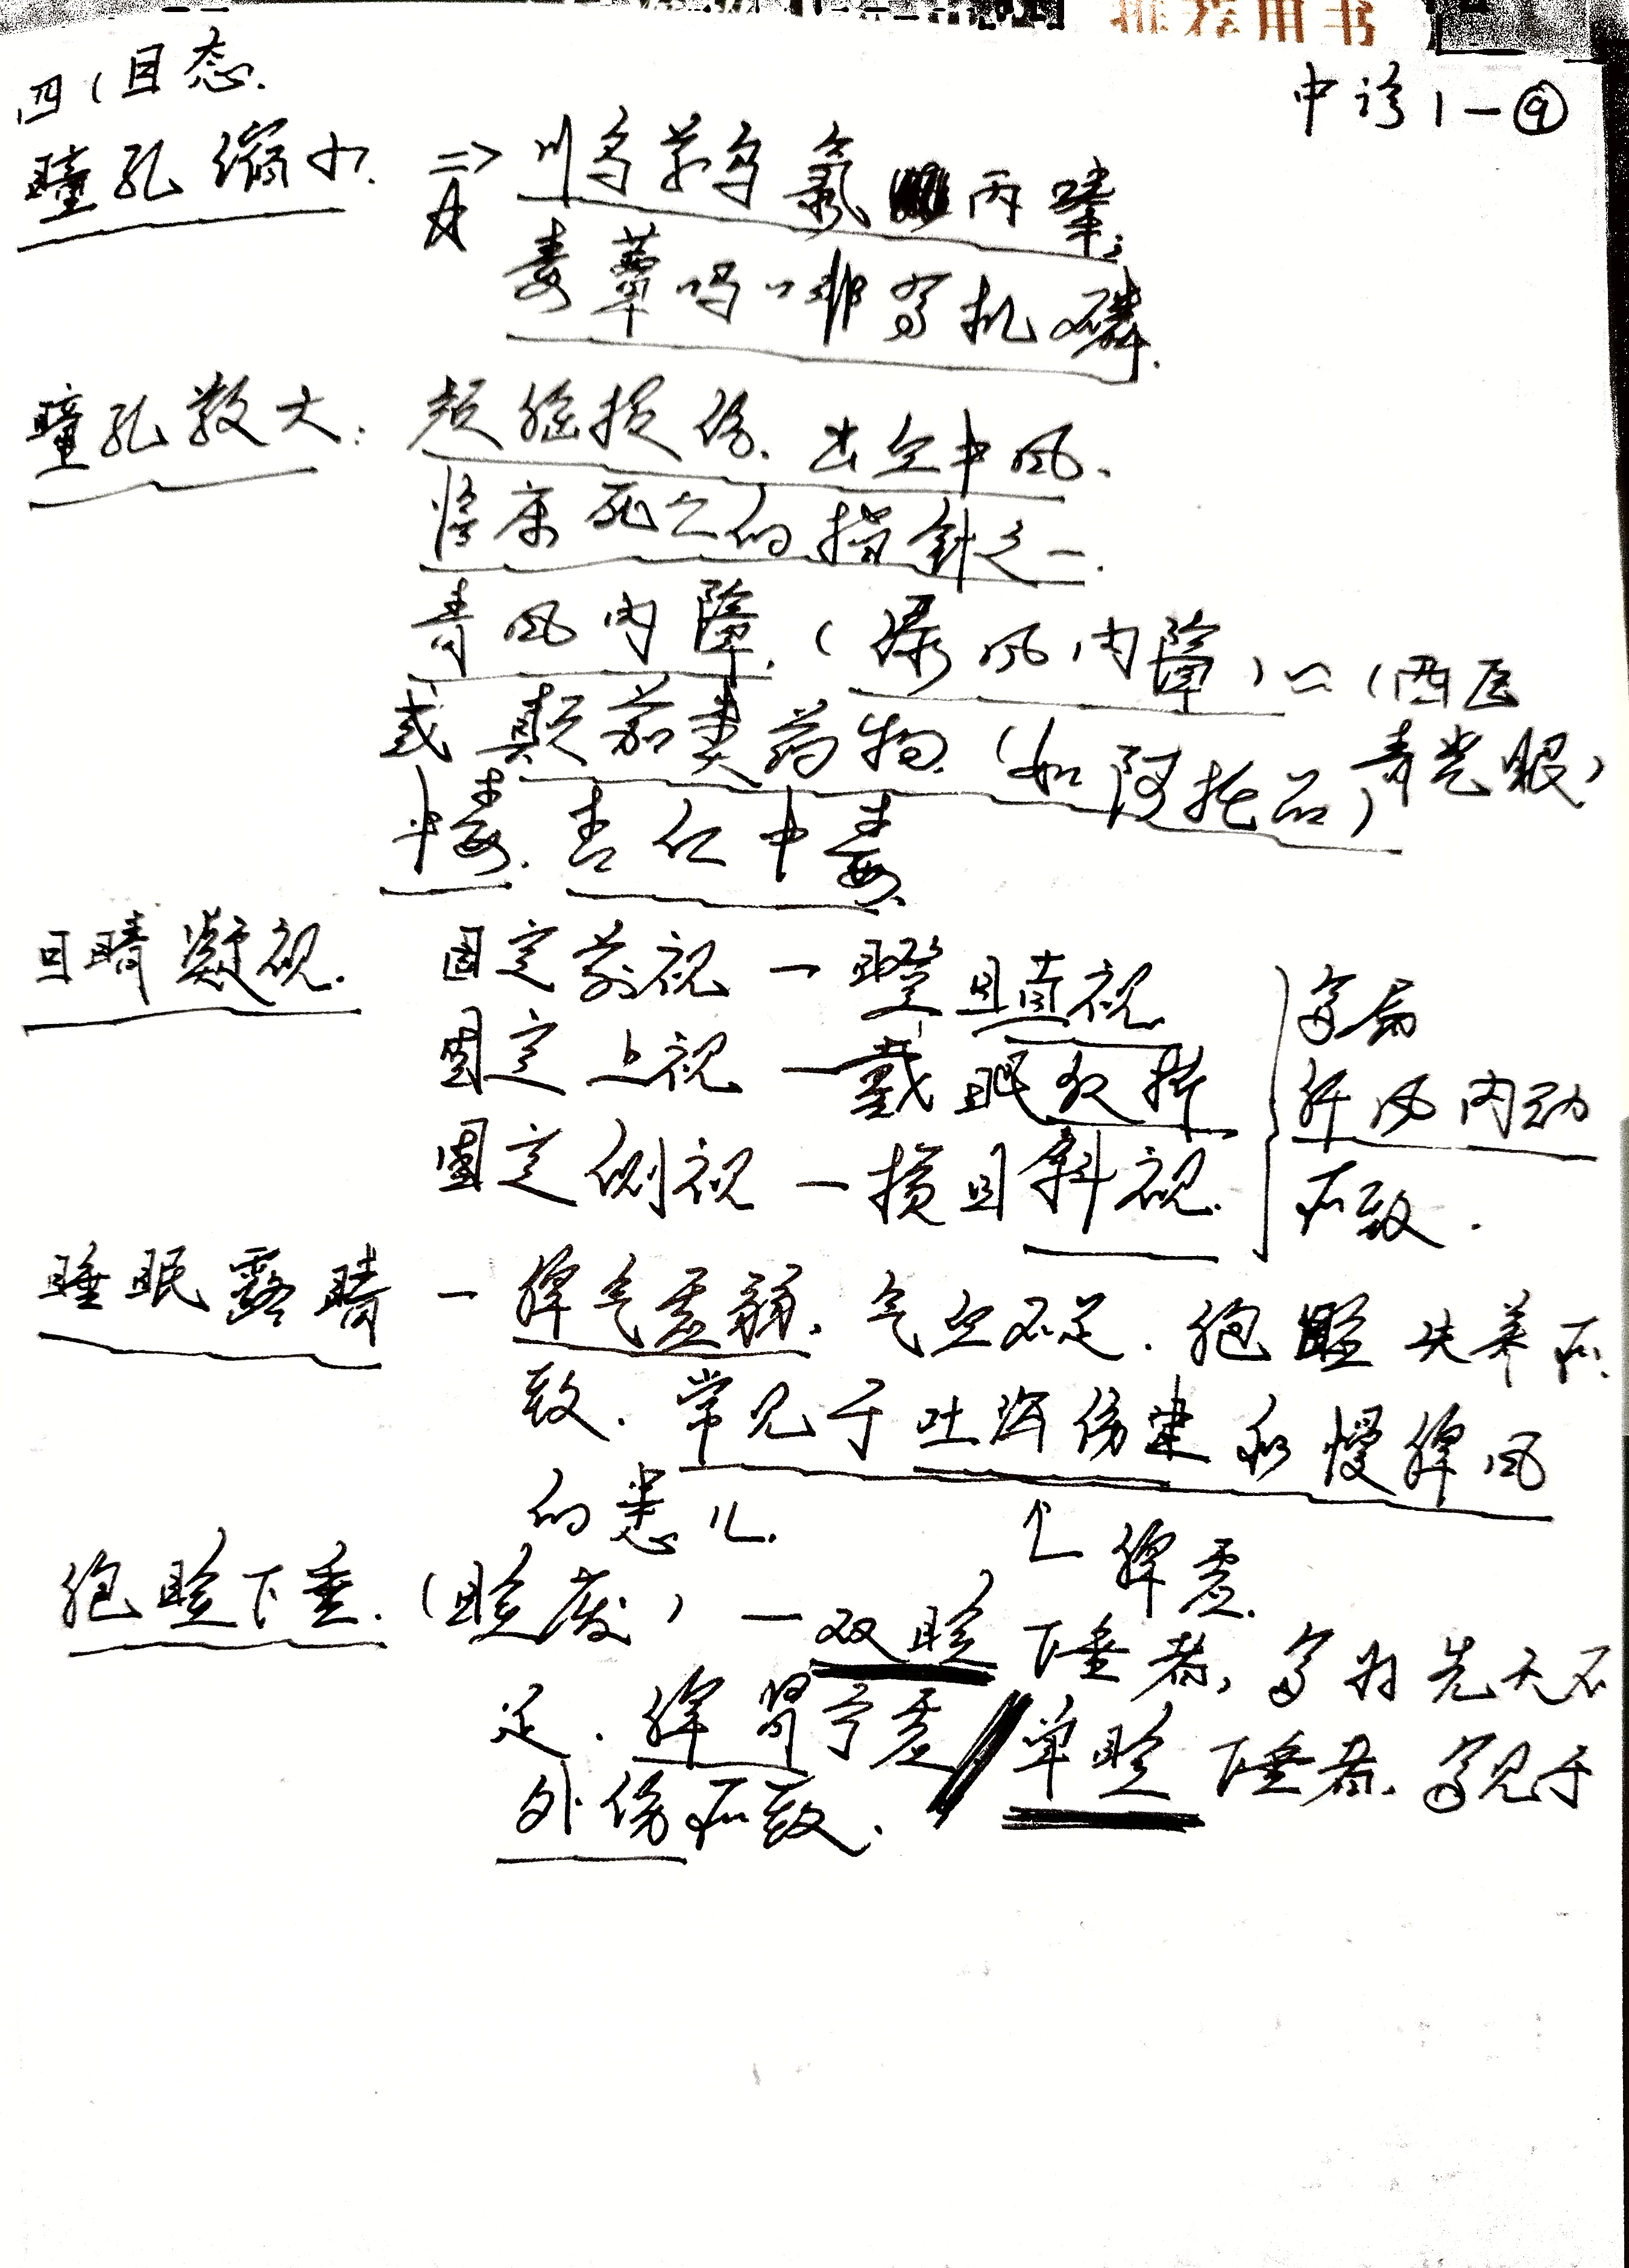 推荐用书
中诊1-⑨
四、目态.
瞳孔缩小. => 川乌草乌氯丙嗪;
毒蕈吗啡有机磷.
瞳孔散大: 颅脑损伤. 出血中风.
临床死亡的指针之一.
青风内障.(绿风内障)(西医
青光眼)
或颠茄类药物.(如阿托品)
中毒. 杏仁中毒.
目睛凝视. 固定前视 — 瞪目直视
固定上视 — 戴眼反折
固定侧视 — 横目斜视.
多属
肝风内动
所致.
睡眠露睛 — 脾气虚弱. 气血不足. 胞睑失养所
致. 常见于吐泻伤津和慢脾风
的患儿.
↑脾虚.
胞睑下垂.(睑废) — 双睑下垂者, 多为先天不
足. 脾肾亏虚 // 单睑下垂者. 多见于
外伤所致.